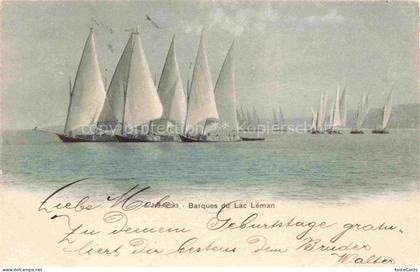 Barques du Lac Léman
Liebe
Zu deinem Geburtstage gratu-
liert dir bestens dein Bruder
Walter